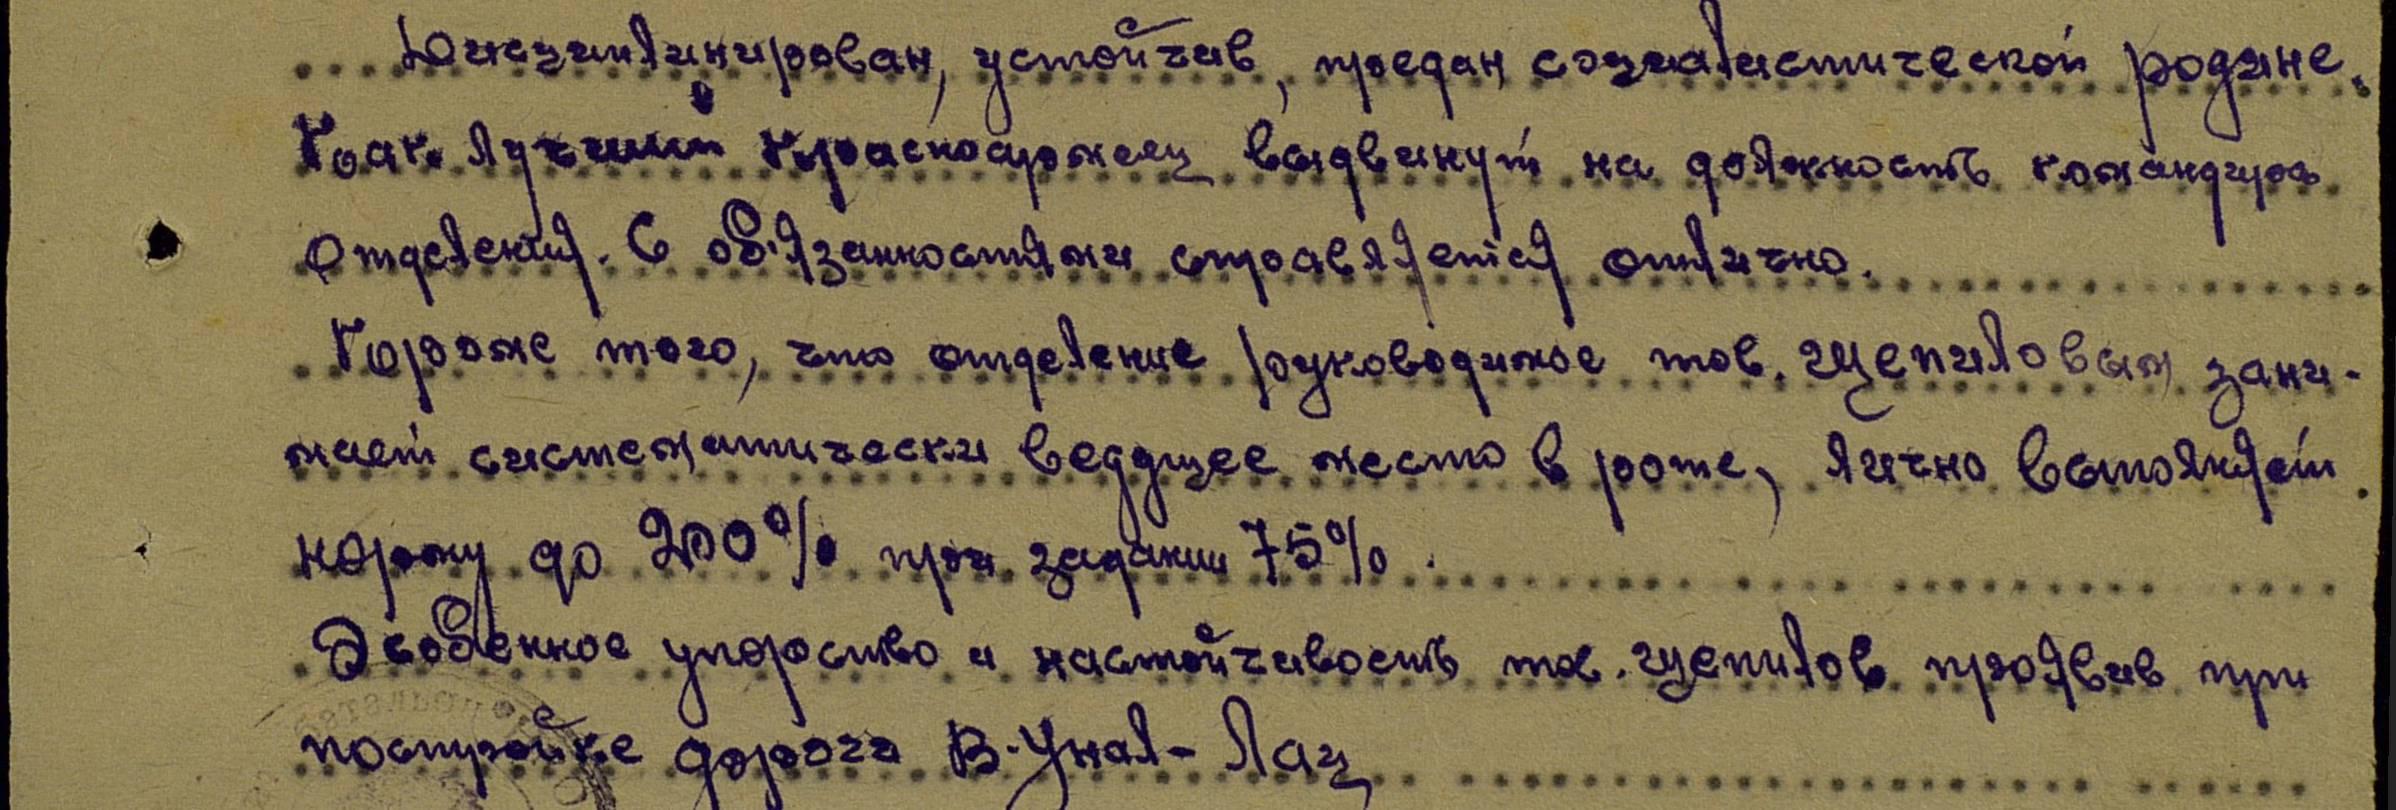 Дисциплинирован, устойчив, предан социалистической родине.
Как лучший красноармеец выдвинут на должность командира
отделения. С об'язанностями справляется отлично.
Кроме того, что отделение руководимое тов. Щепиловым зани-
мает систематически ведущее место в роте, лично выполняет
норму до 200% при задании 75%.
Особенное упорство и настойчивость тов. Щепилов проявив при
постройке дороги В.Унал-Лац